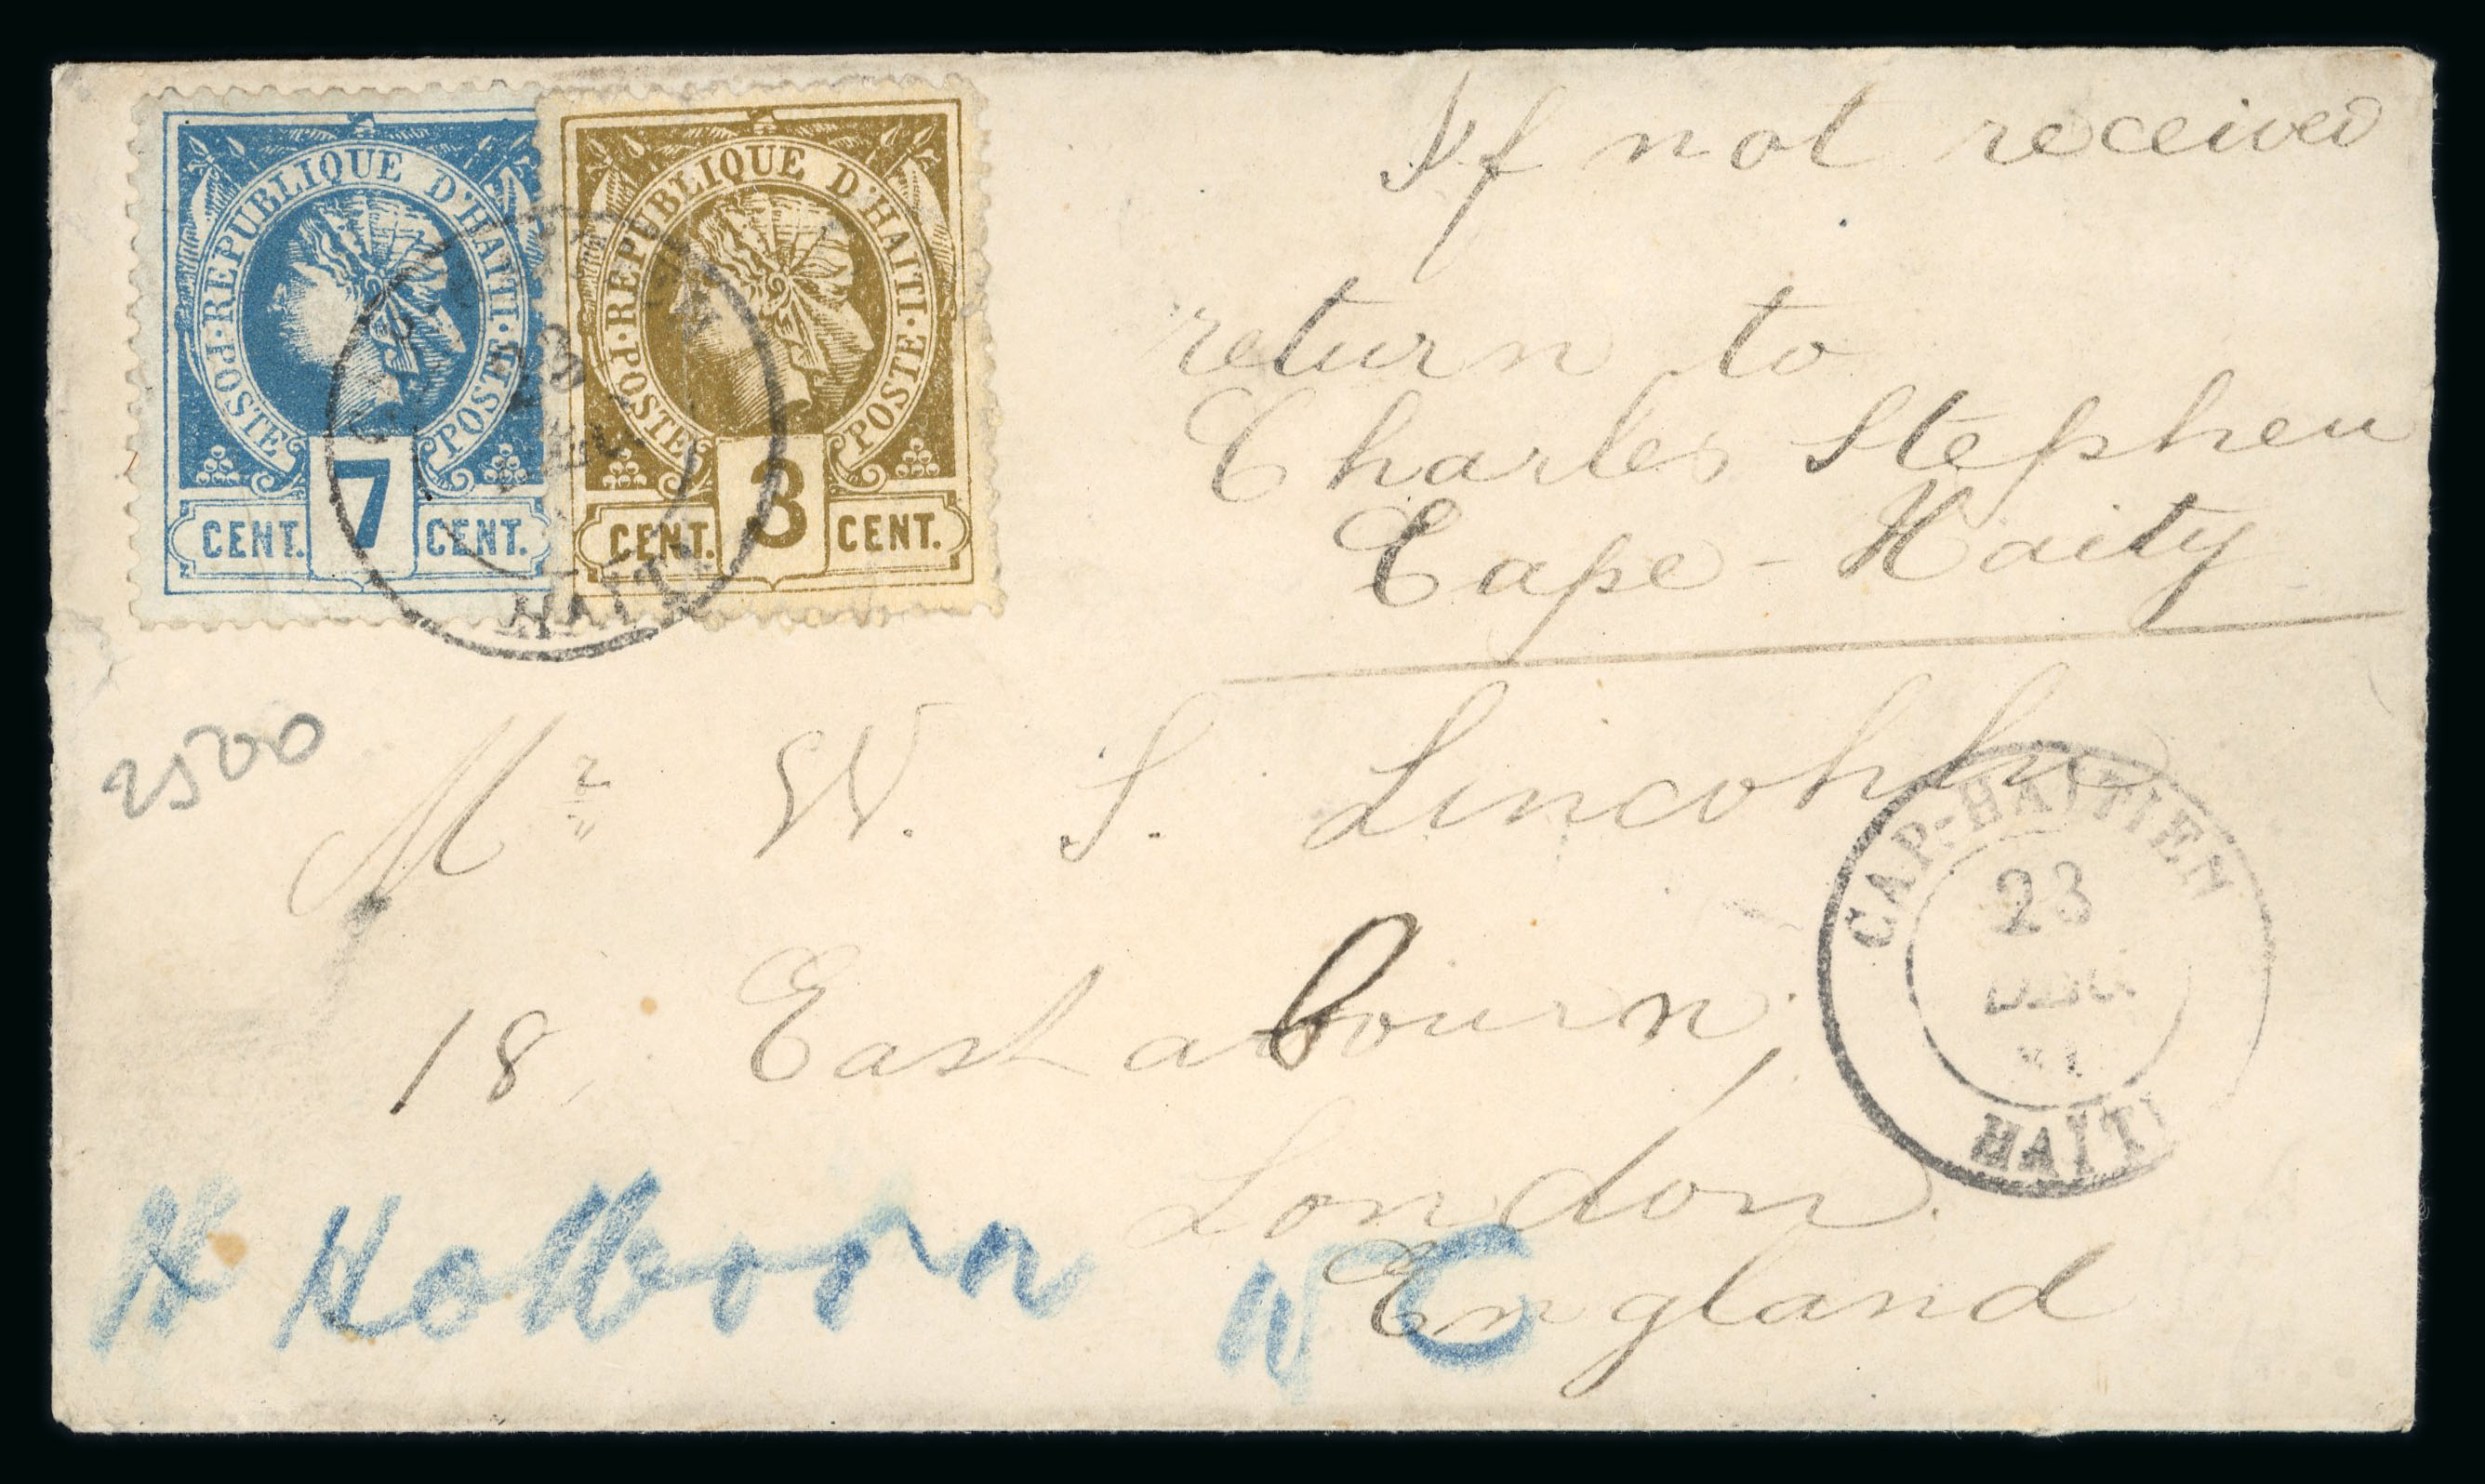 POSTE · REPUBLIQUE D'HAITI · POSTE
7
CENT. CENT.
POSTE · REPUBLIQUE D'HAITI · POSTE
3
CENT. CENT.
23
HAITI
If not received
return to
Charles Stephen
Cape-Haity
2500
Mr W. S. Lincohln
18, Eastabourn
London.
England
CAP-HAITIEN
23
HAITI
H Holborn WC